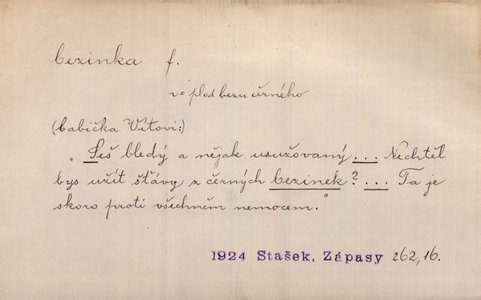 bezinka f.
v = plod bezu černého
(babička Vítovi:)
„Seš bledý a nějak usužovaný ... Nechtěl
bys užít šťávy z černých bezinek? ... Ta je
skoro proti všechněm nemocem."
1924 Stašek, Zápasy 262,16.